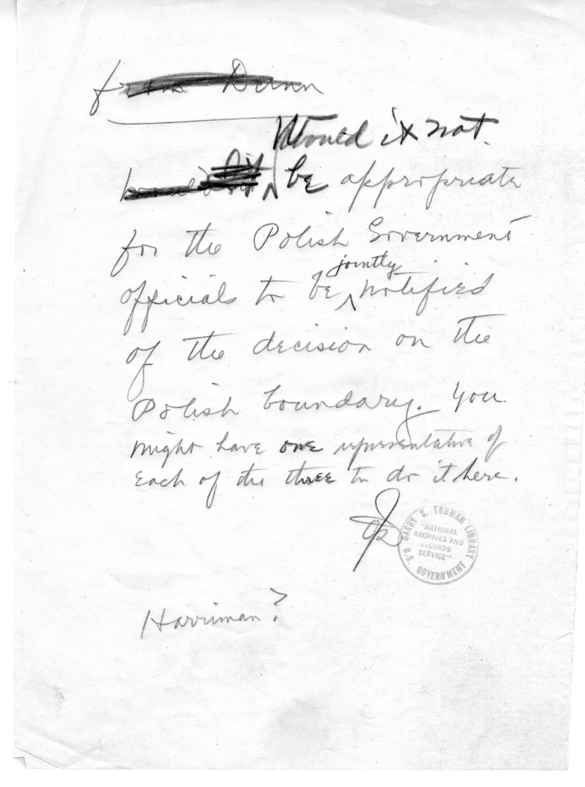 from Dunn
Would it not
be appropriate
for the Polish Government
officials to be jointly notified
of the decision on the
Polish boundary. You
might have one representative of
each of the three to do it here.
HARRY S. TRUMAN LIBRARY
"NATIONAL
ARCHIVES AND
RECORDS
SERVICE"
U.S. GOVERNMENT
Harriman?